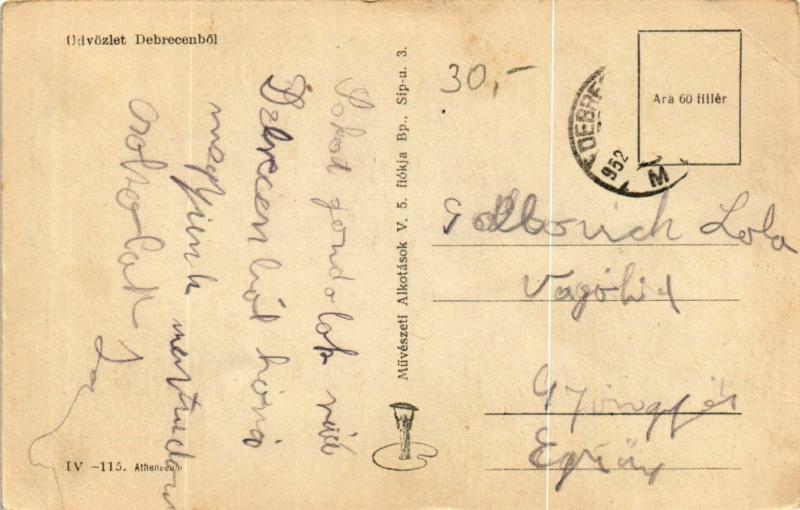 Üdvözlet Debrecenből
Sokat gondolok rád
Debrecenből hova
megyünk nem tudom
csókollak
IV -115. Athenaeum
Művészeti Alkotások V. 5. fiókja Bp., Sip-u. 3.
30,-
DEBRE
952
M
Ára 60 fillér
Lola
Vágóhíd
Gyöngyös